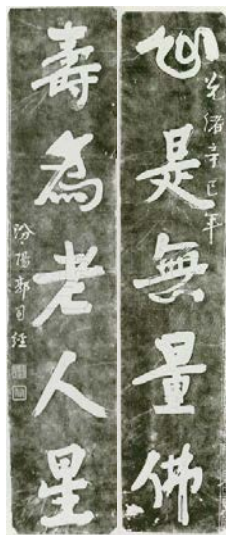 心是無量佛
光緒辛巳年
壽為老人星
汾陽郭自經